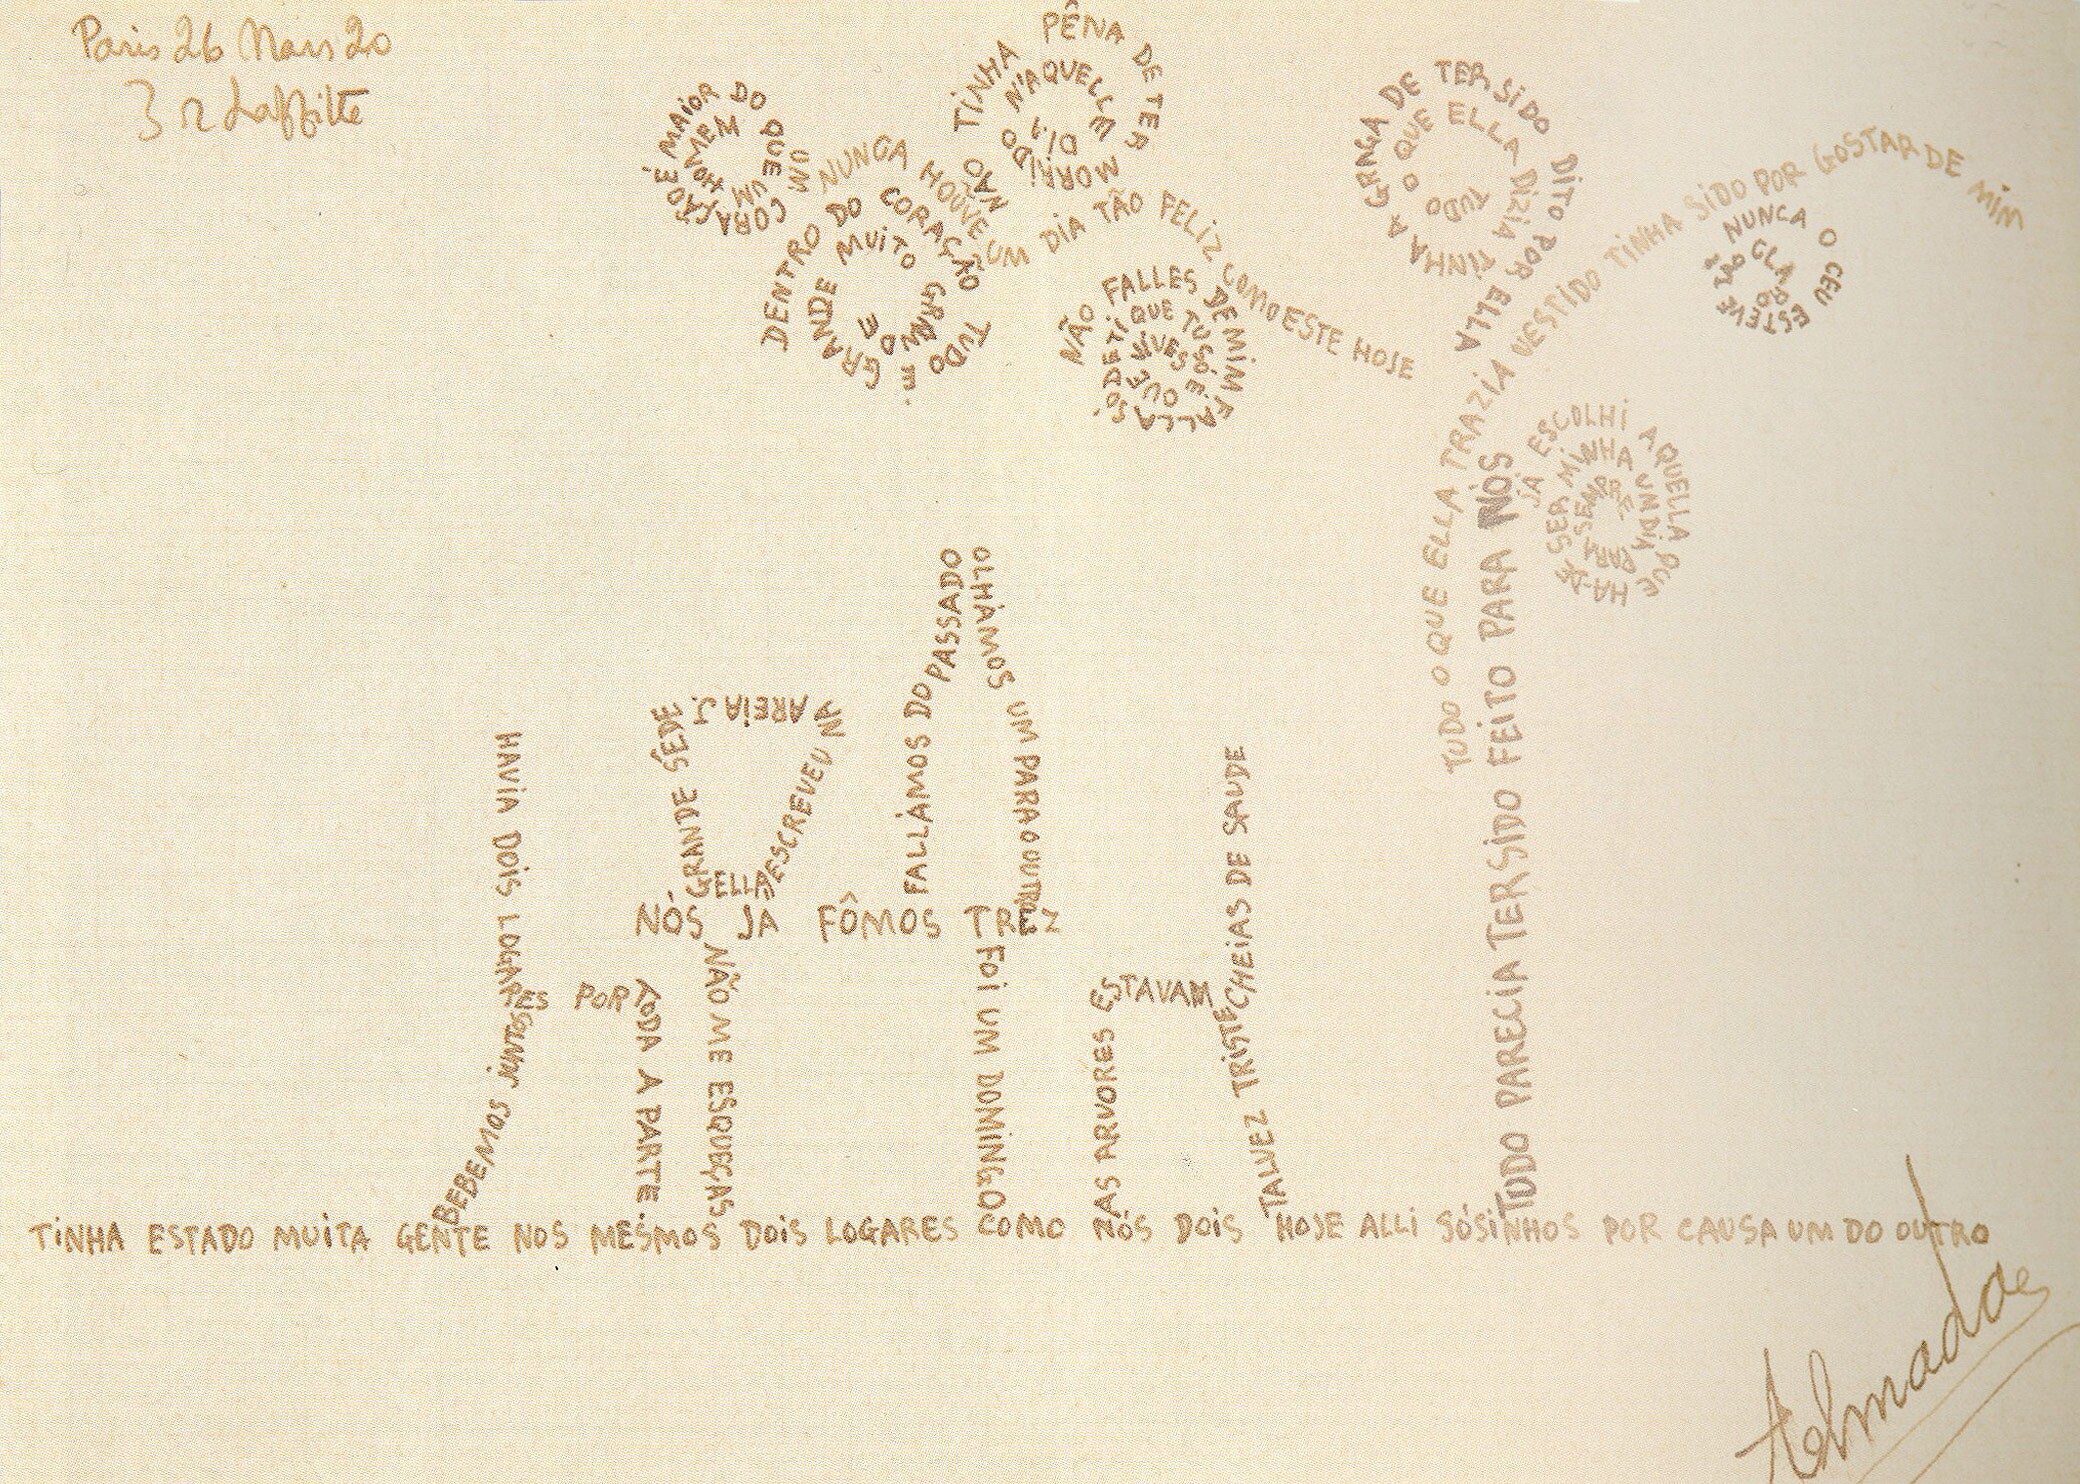 Paris 26 Mars 20
3 r Laffitte
CORAÇÃO É MAIOR DO QUE UM HOMEM
UM
NUNCA HOUVE UM DIA TÃO FELIZ COMO ESTE HOJE
NÃO TINHA PÊNA DE TER MORRIDO N'AQUELLE DIA
DENTRO DO CORAÇÃO TUDO É GRANDE MUITO GRANDE
NÃO FALLES DE MIM FALLA SÓ DE TI QUE TU SÓ É QUE VIVES
TINHA A GRAÇA DE TER SIDO DITO POR ELLA
TUDO O QUE ELLA DIZIA
TUDO O QUE ELLA TRAZIA VESTIDO TINHA SIDO POR GOSTAR DE MIM
NUNCA O CEU ESTEVE TÃO CLARO
JÁ ESCOLHI AQUELLA QUE HA-DE SER MINHA UM DIA PARA SEMPRE
TUDO PARECIA TER SIDO FEITO PARA NÓS
HAVIA DOIS LOGARES POR TODA A PARTE
BEBEMOS JUNTOS
GRANDE SÊDE
ELLA ESCREVEU NA AREIA J.
FALLÁMOS DO PASSADO
OLHÁMOS UM PARA O OUTRO
NÓS JA FÔMOS TREZ
NÃO ME ESQUEÇAS
FOI UM DOMINGO
AS ARVORES ESTAVAM CHEIAS DE SAUDE
TALVEZ TRISTE
TINHA ESTADO MUITA GENTE NOS MESMOS DOIS LOGARES COMO NÓS DOIS HOJE ALLI SÓSINHOS POR CAUSA UM DO OUTRO
Almada